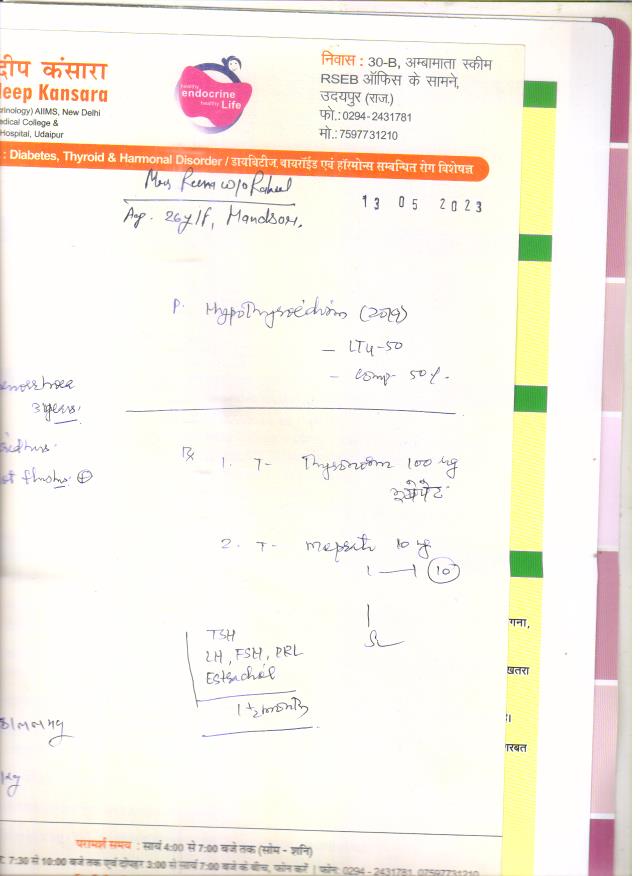 दीप कंसारा
deep Kansara
rinology) AIIMS, New Delhi
edical College &
Hospital, Udaipur
healthy
endocrine
healthy Life
निवास : 30-B, अम्बामाता स्कीम
RSEB ऑफिस के सामने,
उदयपुर (राज.)
फो.: 0294-2431781
मो.: 7597731210
: Diabetes, Thyroid & Harmonal Disorder / डायबिटीज थायरॉईड एवं हॉरमोन्स सम्बन्धित रोग विशेषज्ञ
Mrs Reena w/o Rahul
13 05 2023
Age. 26y/f, Mandsor.
P. Hypothyroidism (2019)
- LT4-50
- Comp- 50%.
enorrhoea
3 years.
Rx 1. T- Thyronorm 100 ug
2. T- Meprate 10 mg
1 — 1 (10)
TSH
LH, FSH, PRL
Estradiol
गना,
खतरा
है।
गरबत
परामर्श समय : सायं 4:00 से 7:00 बजे तक (सोम - शनि)
: 7:30 से 10:00 बजे तक एवं दोपहर 3:00 से सायं 7:00 बजे के बीच, फोन करें | फोन: 0294 - 2431781, 07597731210